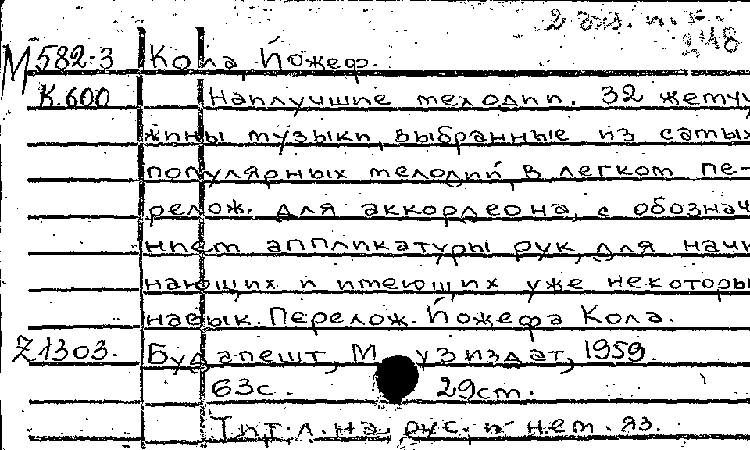 2 экз. н.
248
М 582-3 Кола, Йожеф.
К.600 Наилучшие мелодии. 32 жемчу
жины музыки, выбранные из самых
популярных мелодий, в легком пе-
релож. для аккордеона, с обознач
нием аппликатуры рук, для начи
нающих и имеющих уже некоторы
навык. Перелож. Йожефа Кола.
Z1303. Будапешт, Музиздат, 1959.
63с. 29см.
Тит.л.на рус. и нем. яз.